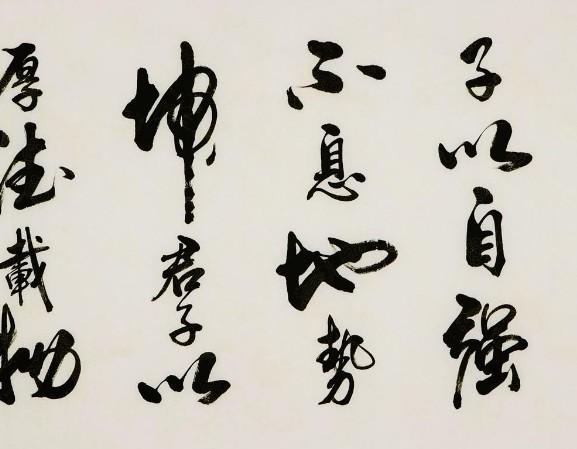 子以自强
不息地势
坤君子以
厚德载物